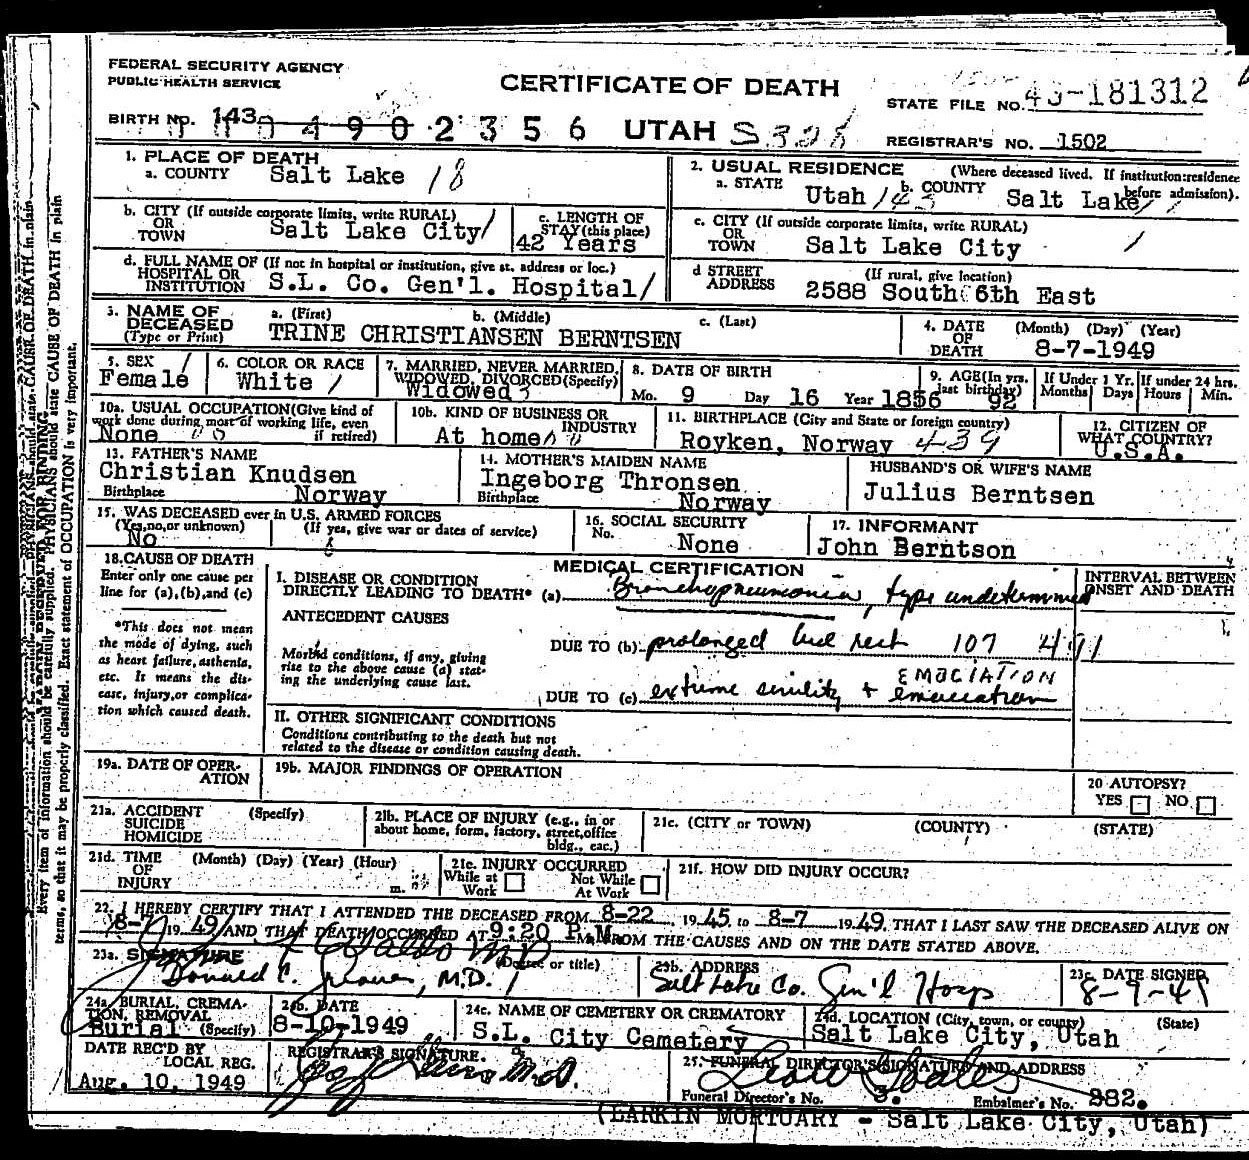 FEDERAL SECURITY AGENCY
PUBLIC HEALTH SERVICE
CERTIFICATE OF DEATH
STATE FILE NO. 49-181312
BIRTH NO. 143
UTAH
REGISTRAR'S NO. 1502
1. PLACE OF DEATH
a. COUNTY Salt Lake 18
2. USUAL RESIDENCE (Where deceased lived. If institution: residence before admission).
a. STATE Utah 143 b. COUNTY Salt Lake
b. CITY (If outside corporate limits, write RURAL)
OR
TOWN Salt Lake City
c. LENGTH OF STAY (this place)
42 Years
c. CITY (If outside corporate limits, write RURAL)
OR
TOWN Salt Lake City
d. FULL NAME OF (If not in hospital or institution, give st. address or loc.)
HOSPITAL OR
INSTITUTION S.L. Co. Gen'l. Hospital
d STREET ADDRESS (If rural, give location)
2588 South 6th East
3. NAME OF DECEASED (Type or Print)
a. (First) b. (Middle) c. (Last)
TRINE CHRISTIANSEN BERNTSEN
4. DATE OF DEATH (Month) (Day) (Year)
8-7-1949
5. SEX
Female
6. COLOR OR RACE
White
7. MARRIED, NEVER MARRIED, WIDOWED, DIVORCED (Specify)
Widowed 3
8. DATE OF BIRTH
Mo. 9 Day 16 Year 1856
9. AGE (In yrs. last birthday) 92
If Under 1 Yr. Months Days
If under 24 hrs. Hours Min.
10a. USUAL OCCUPATION (Give kind of work done during most of working life, even if retired)
None
10b. KIND OF BUSINESS OR INDUSTRY
At home
11. BIRTHPLACE (City and State or foreign country)
Royken, Norway 439
12. CITIZEN OF WHAT COUNTRY?
U.S.A.
13. FATHER'S NAME
Christian Knudsen
Birthplace Norway
14. MOTHER'S MAIDEN NAME
Ingeborg Thronsen
Birthplace Norway
HUSBAND'S OR WIFE'S NAME
Julius Berntsen
15. WAS DECEASED ever in U.S. ARMED FORCES
(Yes, no, or unknown) (If yes, give war or dates of service)
No
16. SOCIAL SECURITY No.
None
17. INFORMANT
John Berntson
18. CAUSE OF DEATH
Enter only one cause per line for (a), (b), and (c)
*This does not mean the mode of dying, such as heart failure, asthenia, etc. It means the disease, injury, or complication which caused death.
MEDICAL CERTIFICATION
INTERVAL BETWEEN ONSET AND DEATH
I. DISEASE OR CONDITION
DIRECTLY LEADING TO DEATH* (a) Bronchopneumonia, type undetermined
ANTECEDENT CAUSES
Morbid conditions, if any, giving rise to the above cause (a) stating the underlying cause last.
DUE TO (b) prolonged bed rest 107 491
EMACIATION
DUE TO (c) extreme senility + emaciation
II. OTHER SIGNIFICANT CONDITIONS
Conditions contributing to the death but not related to the disease or condition causing death.
19a. DATE OF OPERATION
19b. MAJOR FINDINGS OF OPERATION
20 AUTOPSY?
YES NO
21a. ACCIDENT (Specify)
SUICIDE
HOMICIDE
21b. PLACE OF INJURY (e.g., in or about home, form, factory, street, office bldg., eac.)
21c. (CITY or TOWN) (COUNTY) (STATE)
21d. TIME OF INJURY (Month) (Day) (Year) (Hour) m.
21e. INJURY OCCURRED
While at Work Not While At Work
21f. HOW DID INJURY OCCUR?
22. I HEREBY CERTIFY THAT I ATTENDED THE DECEASED FROM 8-22 1945 to 8-7 1949, THAT I LAST SAW THE DECEASED ALIVE ON
8-7 1949 AND THAT DEATH OCCURRED AT 9:20 P.M. FROM THE CAUSES AND ON THE DATE STATED ABOVE.
23a. SIGNATURE (Degree or title)
Donald C. M.D.
23b. ADDRESS
Salt Lake Co. Gen'l Hosp
23c. DATE SIGNED
8-9-49
24a. BURIAL, CREMATION, REMOVAL (Specify)
Burial
24b. DATE
8-10-1949
24c. NAME OF CEMETERY OR CREMATORY
S.L. City Cemetery
24d. LOCATION (City, town, or county) (State)
Salt Lake City, Utah
DATE REC'D BY LOCAL REG.
Aug. 10, 1949
REGISTRAR'S SIGNATURE.
25. FUNERAL DIRECTOR'S SIGNATURE AND ADDRESS
Funeral Director's No. 3. Embalmer's No. 282.
(LARKIN MORTUARY - Salt Lake City, Utah)
Every item of information should be carefully supplied. PHYSICIANS should state CAUSE OF DEATH in plain
terms, so that it may be properly classified. Exact statement of OCCUPATION is very important.